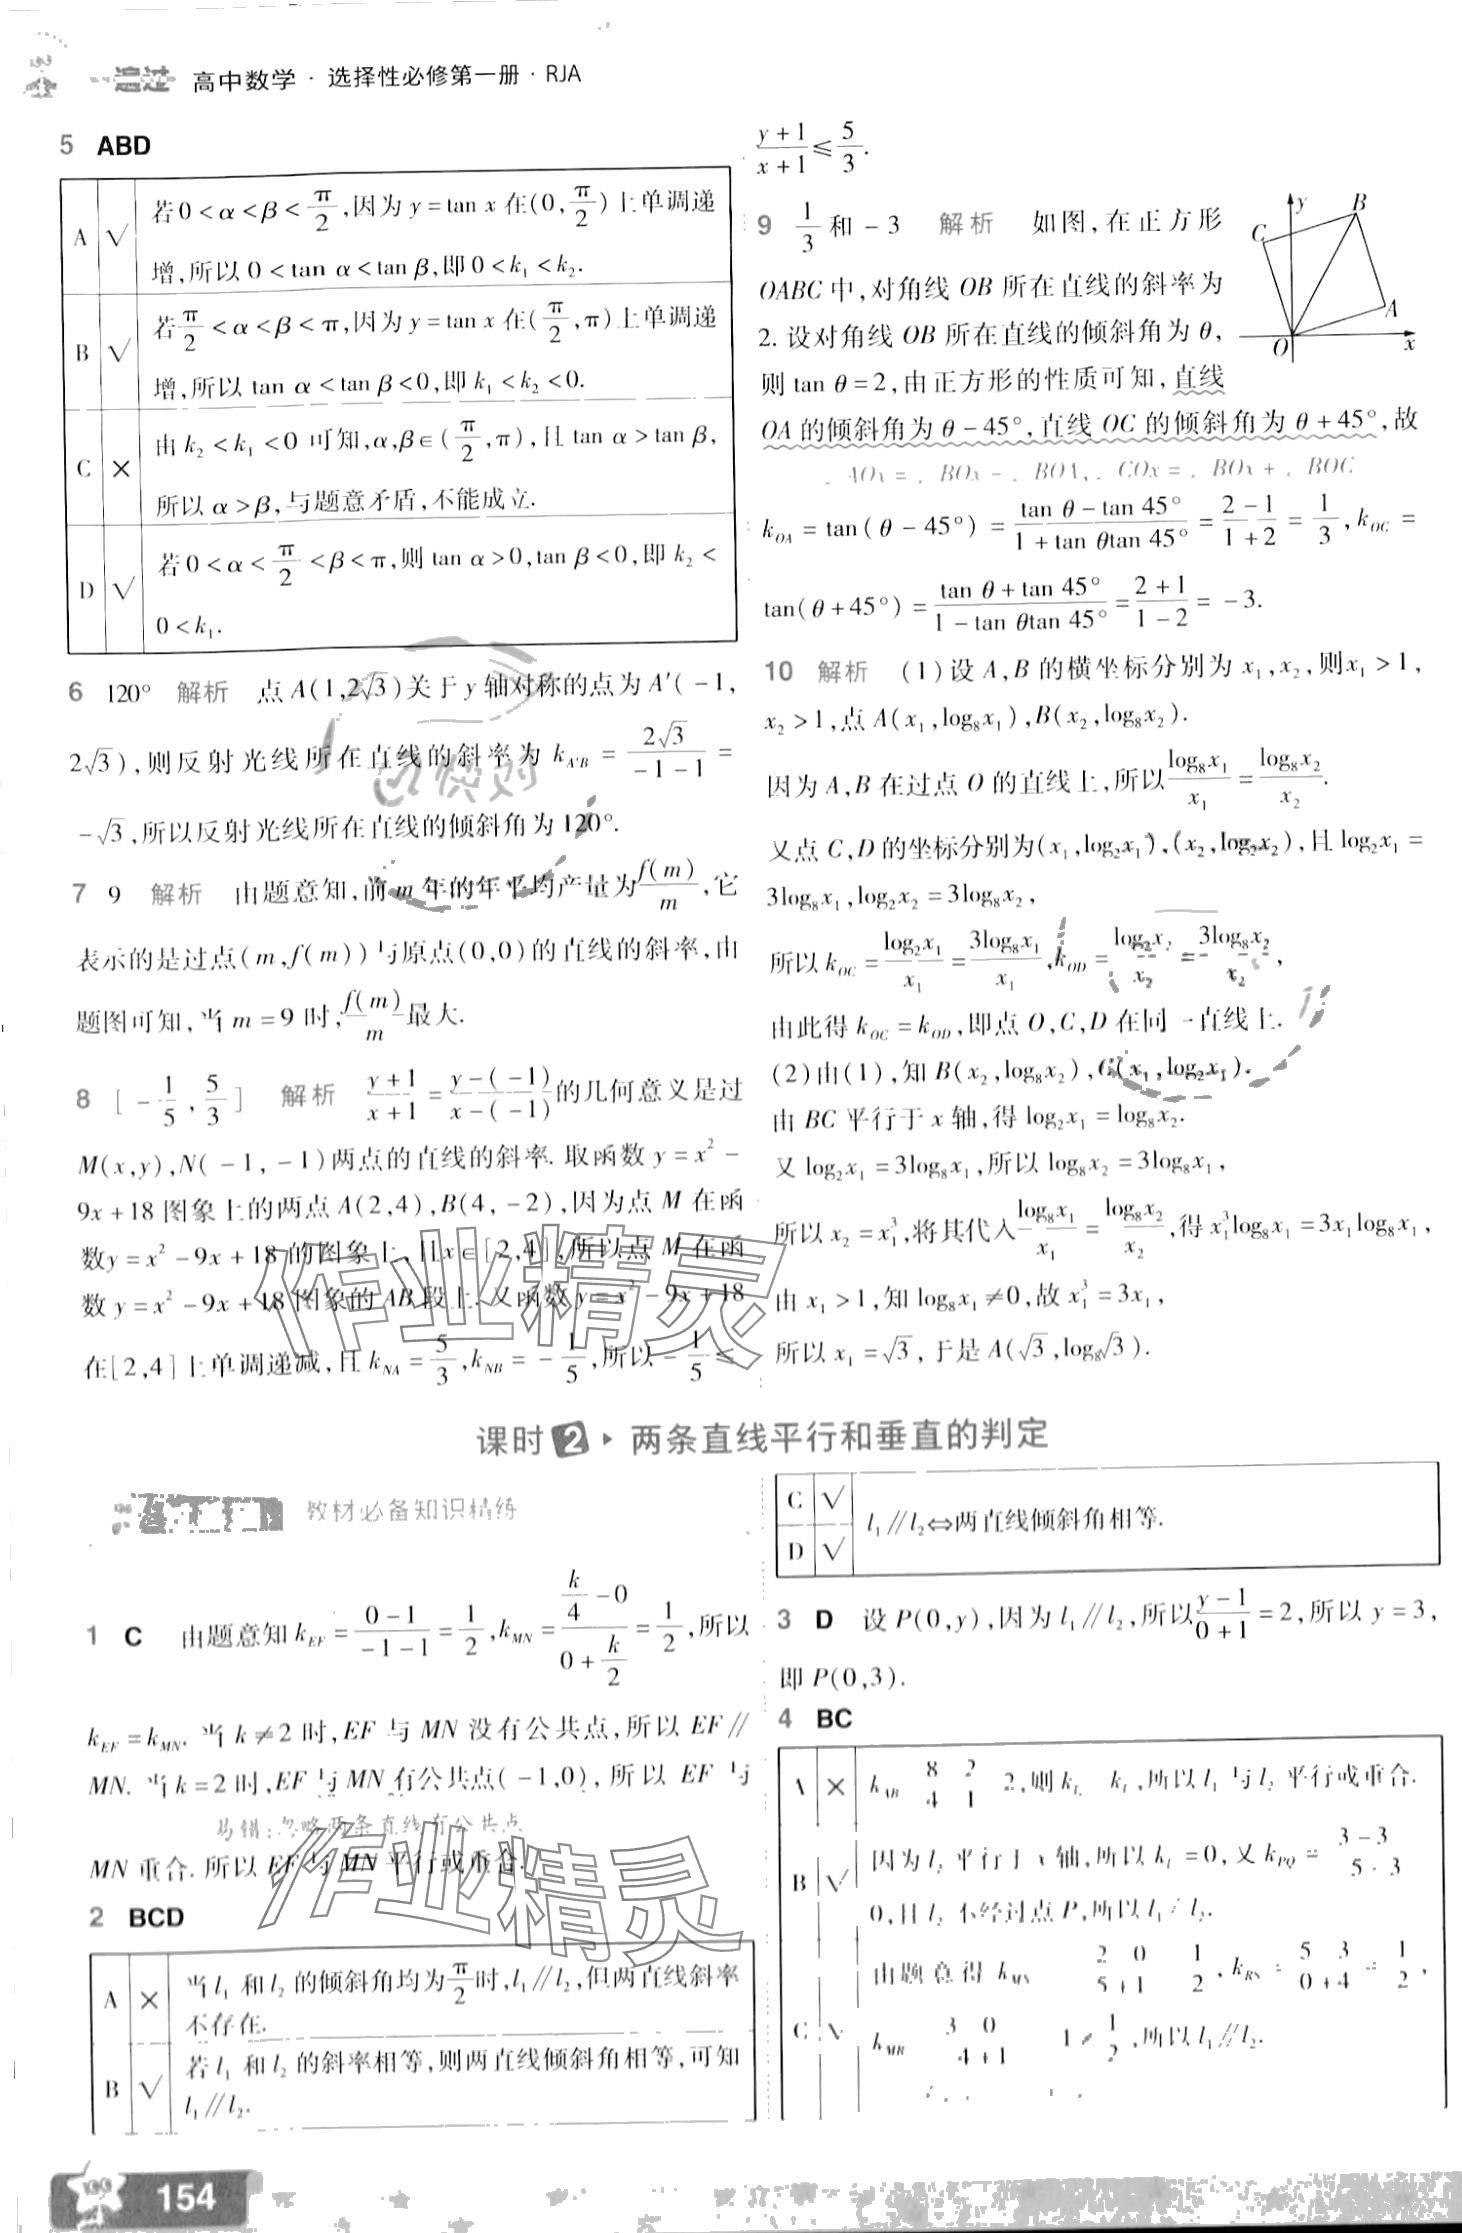 一遍过 高中数学·选择性必修第一册·RJA
5 ABD
A √ 若0<α<β<π/2,因为y=tan x在(0,π/2)上单调递
增,所以0<tan α<tan β,即0<k₁<k₂.
B √ 若π/2<α<β<π,因为y=tan x在(π/2,π)上单调递
增,所以tan α<tan β<0,即k₁<k₂<0.
C × 由k₂<k₁<0可知,α,β∈(π/2,π),且tan α>tan β,
所以α>β,与题意矛盾,不能成立.
D √ 若0<α<π/2<β<π,则tan α>0,tan β<0,即k₂<
0<k₁.
6 120° 解析 点A(1,2√3)关于y轴对称的点为A′(-1,
2√3),则反射光线所在直线的斜率为k_{A′B}=2√3/(-1-1)=
-√3,所以反射光线所在直线的倾斜角为120°.
7 9 解析 由题意知,前m年的年平均产量为f(m)/m,它
表示的是过点(m,f(m))与原点(0,0)的直线的斜率,由
题图可知,当m=9时,f(m)/m最大.
8 [-1/5,5/3] 解析 (y+1)/(x+1)=(y-(-1))/(x-(-1))的几何意义是过
M(x,y),N(-1,-1)两点的直线的斜率.取函数y=x²-
9x+18图象上的两点A(2,4),B(4,-2),因为点M在函
数y=x²-9x+18的图象上,且x∈[2,4],所以点M在函
数y=x²-9x+18图象的AB段上.又函数y=x²-9x+18
在[2,4]上单调递减,且k_{NA}=5/3,k_{NB}=-1/5,所以-1/5≤
(y+1)/(x+1)≤5/3.
9 1/3和-3 解析 如图,在正方形
OABC中,对角线OB所在直线的斜率为
2.设对角线OB所在直线的倾斜角为θ,
则tan θ=2,由正方形的性质可知,直线
OA的倾斜角为θ-45°,直线OC的倾斜角为θ+45°,故
AOx= BOx- BOA, COx= BOx+ BOC
y B C A O x
k_{OA}=tan(θ-45°)=(tan θ-tan 45°)/(1+tan θtan 45°)=(2-1)/(1+2)=1/3,k_{OC}=
tan(θ+45°)=(tan θ+tan 45°)/(1-tan θtan 45°)=(2+1)/(1-2)=-3.
10 解析 (1)设A,B的横坐标分别为x₁,x₂,则x₁>1,
x₂>1,点A(x₁,log₈x₁),B(x₂,log₈x₂).
因为A,B在过点O的直线上,所以log₈x₁/x₁=log₈x₂/x₂.
又点C,D的坐标分别为(x₁,log₂x₁),(x₂,log₂x₂),且log₂x₁=
3log₈x₁,log₂x₂=3log₈x₂,
所以k_{OC}=log₂x₁/x₁=3log₈x₁/x₁,k_{OD}=log₂x₂/x₂=3log₈x₂/x₂,
由此得k_{OC}=k_{OD},即点O,C,D在同一直线上.
(2)由(1),知B(x₂,log₈x₂),C(x₁,log₂x₁).
由BC平行于x轴,得log₂x₁=log₈x₂.
又log₂x₁=3log₈x₁,所以log₈x₂=3log₈x₁,
所以x₂=x₁³,将其代入log₈x₁/x₁=log₈x₂/x₂,得x₁³log₈x₁=3x₁log₈x₁,
由x₁>1,知log₈x₁≠0,故x₁³=3x₁,
所以x₁=√3,于是A(√3,log₈√3).
课时2 两条直线平行和垂直的判定
教材必备知识精练
1 C 由题意知k_{EF}=(0-1)/(-1-1)=1/2,k_{MN}=(k/4-0)/(0+k/2)=1/2,所以
k_{EF}=k_{MN}.当k≠2时,EF与MN没有公共点,所以EF∥
MN.当k=2时,EF与MN有公共点(-1,0),所以EF与
易错:忽略两条直线有公共点
MN重合.所以EF与MN平行或重合.
2 BCD
A × 当l₁和l₂的倾斜角均为π/2时,l₁∥l₂,但两直线斜率
不存在.
B √ 若l₁和l₂的斜率相等,则两直线倾斜角相等,可知
l₁∥l₂.
C √
D √ l₁∥l₂⇔两直线倾斜角相等.
3 D 设P(0,y),因为l₁∥l₂,所以(y-1)/(0+1)=2,所以y=3,
即P(0,3).
4 BC
A × k_{AB} 8 2 4 1 2,则k k,所以l₁与l₂平行或重合.
B √ 因为l₂平行于x轴,所以k=0,又k_{PQ}= 3-3 5 3
0,且l₂不经过点P,所以l₁ l₂.
C √ 由题意得k 2 0 5+1 1 2,k 5 3 0+4 = 1 2,
k_{MR} 3 0 4+1 1 ≠ 1/2,所以l₁∥l₂.
快对
作业精灵
作业精灵
154